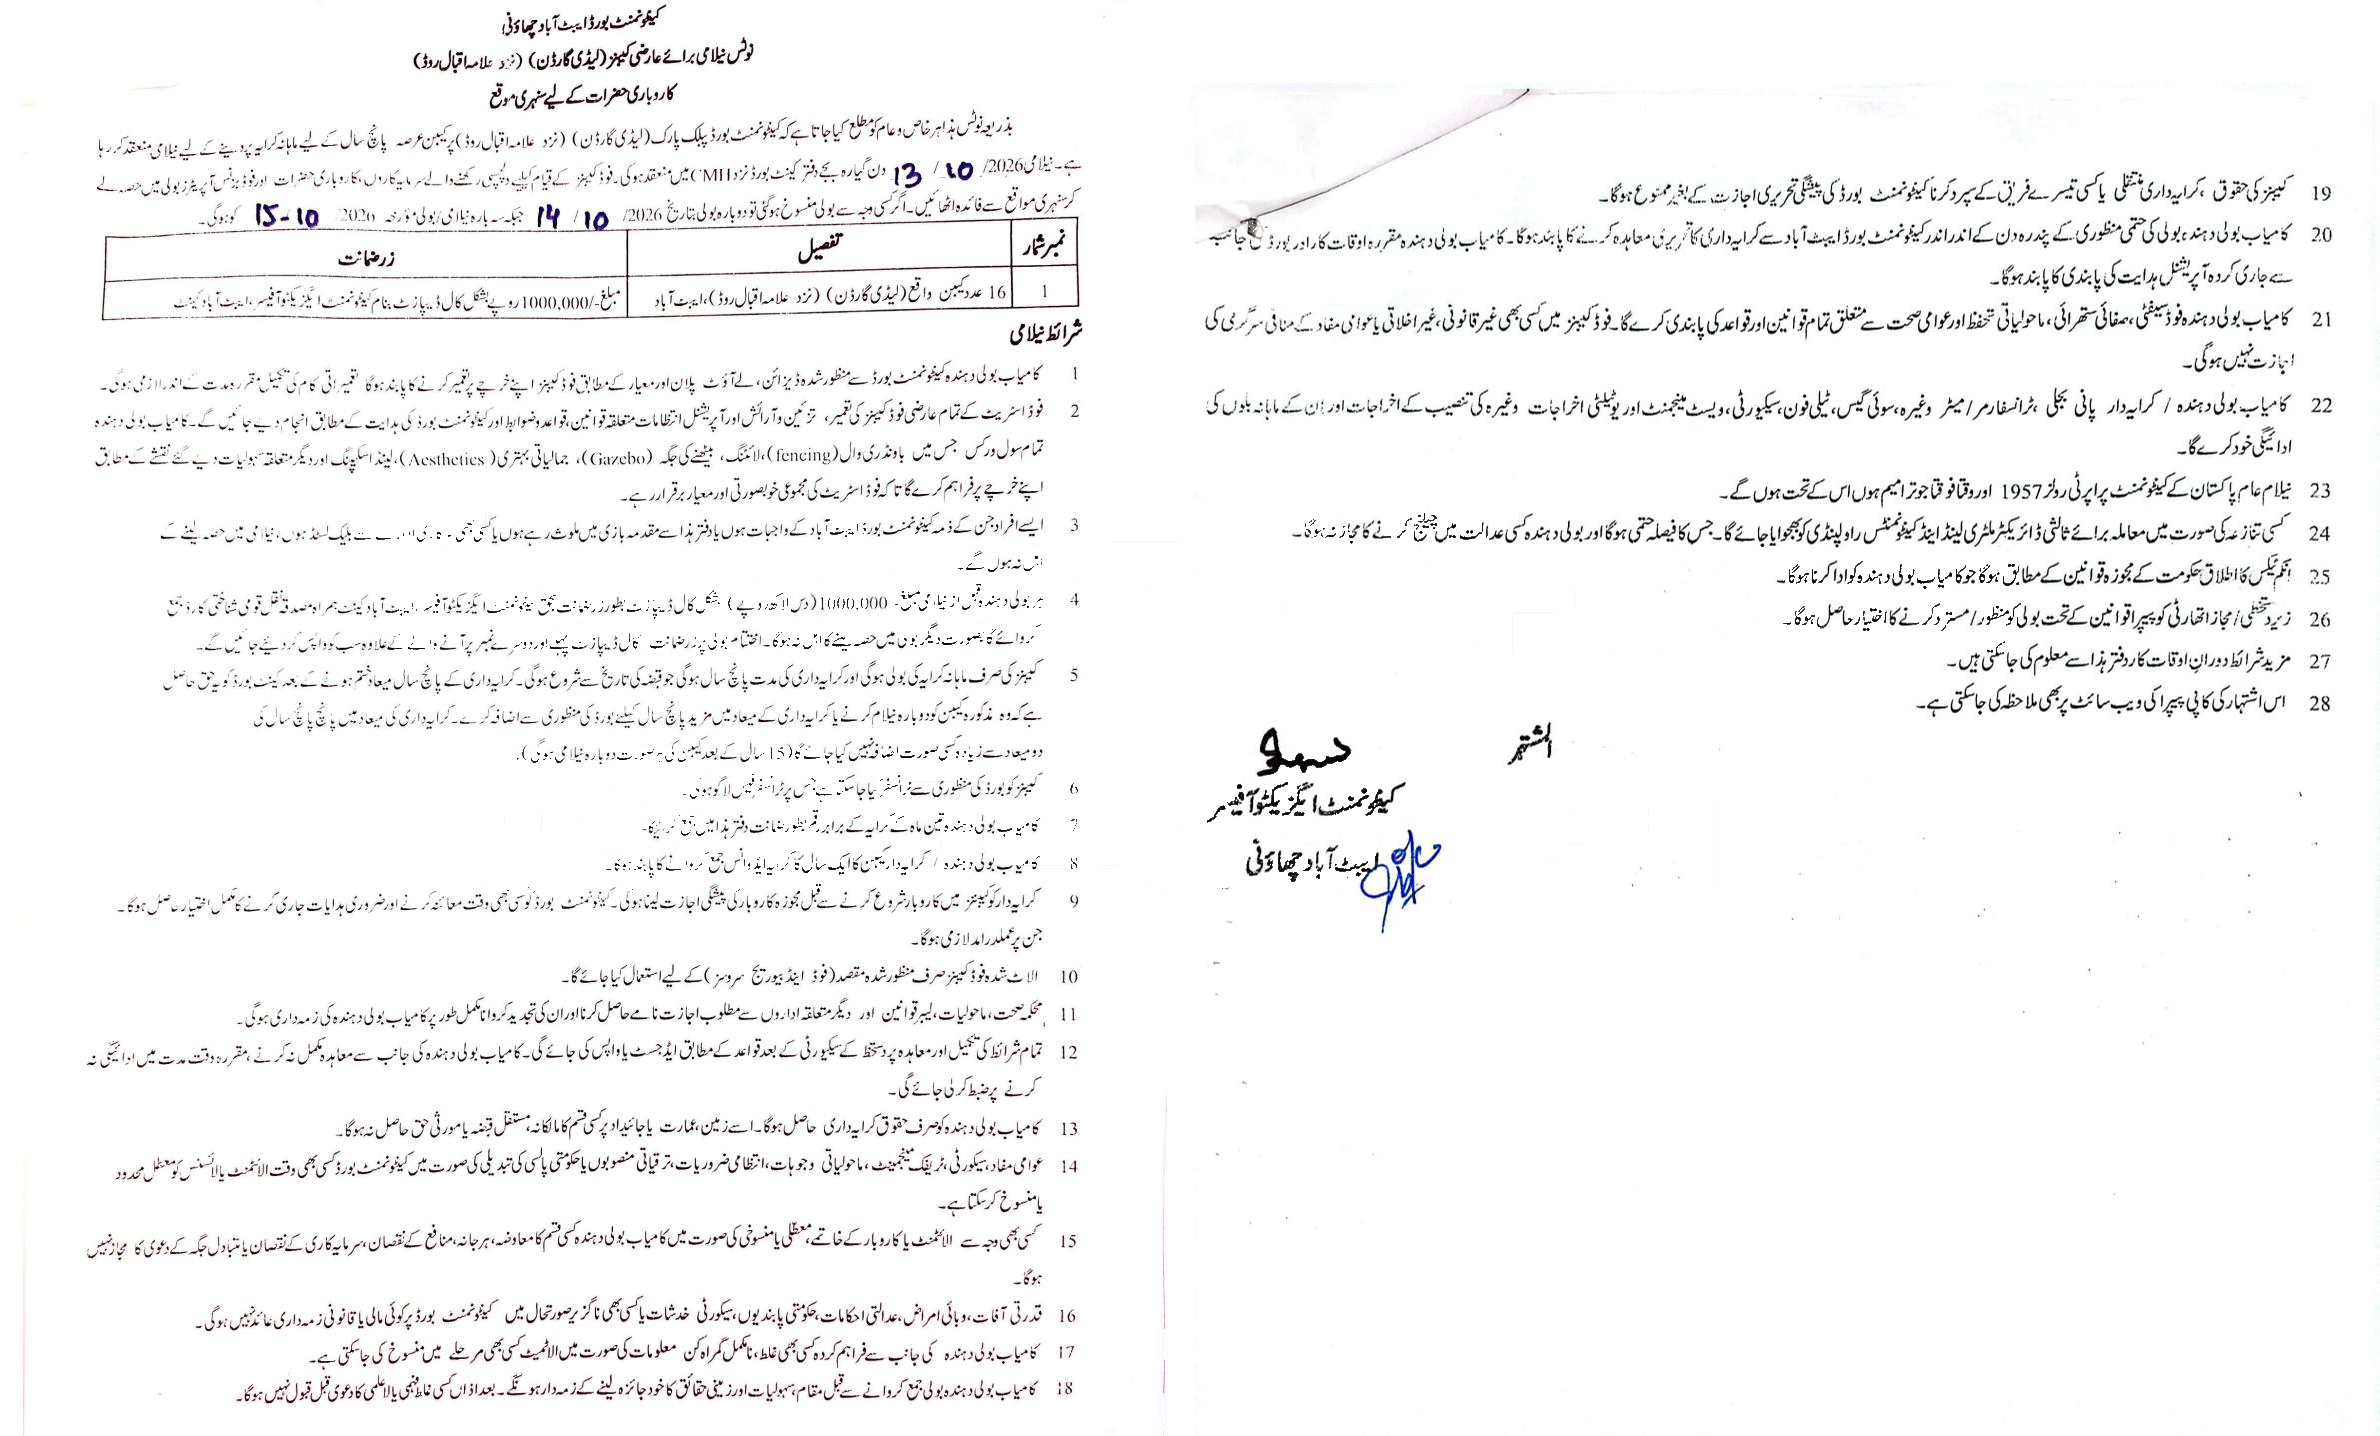 کینٹونمنٹ بورڈ ایبٹ آباد چھاؤنی
نوٹس نیلامی برائے عارضی کیبنز (لیڈی گارڈن) (نزد علامہ اقبال روڈ)
کاروباری حضرات کے لیے سنہری موقع
بذریعہ نوٹس ہذا ہر خاص و عام کو مطلع کیا جاتا ہے کہ کینٹونمنٹ بورڈ پبلک پارک (لیڈی گارڈن) (نزد علامہ اقبال روڈ) پر کیبن عرصہ پانچ سال کے لیے ماہانہ کرایہ پر دینے کے لیے نیلامی منعقد کر رہا
ہے۔ نیلامی 2026/ 10 / 13 دن گیارہ بجے دفتر کینٹ بورڈ نزد CMH میں منعقد ہوگی۔ فوڈ کیبنز کے قیام کیلئے دلچسپی رکھنے والے سرمایہ کاروں، کاروباری حضرات اور فوڈ بزنس آپریٹرز بولی میں حصہ لے
کر سنہری مواقع سے فائدہ اٹھائیں۔ اگر کسی وجہ سے بولی منسوخ ہوگئی تو دوبارہ بولی بتاریخ 2026/ 10 / 14 جبکہ سہ بارہ نیلامی/بولی مؤرخہ 2026/ 10-15 کو ہوگی۔
نمبر شمار تفصیل زرضمانت
1 16 عدد کیبن واقع (لیڈی گارڈن) (نزد علامہ اقبال روڈ)، ایبٹ آباد مبلغ -/1000,000 روپے بشکل کال ڈیپازٹ بنام کینٹونمنٹ ایگزیکٹو آفیسر، ایبٹ آباد کینٹ
شرائط نیلامی
1 کامیاب بولی دہندہ کینٹونمنٹ بورڈ سے منظور شدہ ڈیزائن، لے آؤٹ پلان اور معیار کے مطابق فوڈ کیبنز اپنے خرچے پر تعمیر کرنے کا پابند ہوگا تعمیراتی کام کی تکمیل مقررہ مدت کے اندر لازمی ہوگی۔
2 فوڈ اسٹریٹ کے تمام عارضی فوڈ کیبنز کی تعمیر، تزئین و آرائش اور آپریشنل انتظامات متعلقہ قوانین، قواعد و ضوابط اور کینٹونمنٹ بورڈ کی ہدایت کے مطابق انجام دیے جائیں گے۔ کامیاب بولی دہندہ
تمام سول ورکس جس میں باونڈری وال (fencing)، لائٹنگ، بیٹھنے کی جگہ (Gazebo)، جمالیاتی بہتری (Aesthetics)، لینڈ اسکیپنگ اور دیگر متعلقہ سہولیات دیے گئے نقشے کے مطابق
اپنے خرچے پر فراہم کرے گا تا کہ فوڈ اسٹریٹ کی مجموعی خوبصورتی اور معیار برقرار رہے۔
3 ایسے افراد جن کے ذمہ کینٹونمنٹ بورڈ ایبٹ آباد کے واجبات ہوں یا دفتر ہذا سے مقدمہ بازی میں ملوث رہے ہوں یا کسی بھی سرکاری ادارے سے بلیک لسٹڈ ہوں، نیلامی میں حصہ لینے کے
اہل نہ ہوں گے۔
4 ہر بولی دہندہ قبل از نیلامی مبلغ -1000,000 (دس لاکھ روپے) بشکل کال ڈیپازٹ بطور زرضمانت بحق کینٹونمنٹ ایگزیکٹو آفیسر، ایبٹ آباد کینٹ ہمراہ مصدقہ نقل قومی شناختی کارڈ جمع
کروائے گا بصورت دیگر بولی میں حصہ لینے کا اہل نہ ہوگا۔ اختتام بولی پر زرضمانت کال ڈیپازٹ پہلے اور دوسرے نمبر پر آنے والے کے علاوہ سب کو واپس کر دیئے جائیں گے۔
5 کیبنز کی صرف ماہانہ کرایہ کی بولی ہوگی اور کرایہ داری کی مدت پانچ سال ہوگی جو قبضہ کی تاریخ سے شروع ہوگی۔ کرایہ داری کے پانچ سال میعاد ختم ہونے کے بعد کینٹ بورڈ کو یہ حق حاصل
ہے کہ وہ مذکورہ کیبن کو دوبارہ نیلام کرنے یا کرایہ داری کے میعاد میں مزید پانچ سال کیلئے بورڈ کی منظوری سے اضافہ کرے۔ کرایہ داری کی میعاد میں پانچ پانچ سال کی
دو میعاد سے زیادہ کسی صورت اضافہ نہیں کیا جائے گا (15 سال کے بعد کیبن کی ہر صورت دوبارہ نیلامی ہوگی)۔
6 کیبنز کو بورڈ کی منظوری سے ٹرانسفر کیا جا سکتا ہے جس پر ٹرانسفر فیس لاگو ہوگی۔
7 کامیاب بولی دہندہ تین ماہ کے کرایہ کے برابر رقم بطور ضمانت دفتر ہذا میں جمع کرائیگا۔
8 کامیاب بولی دہندہ / کرایہ دار کیبن کا ایک سال کا کرایہ ایڈوانس جمع کروانے کا پابند ہوگا۔
9 کرایہ دار کو کیبنز میں کاروبار شروع کرنے سے قبل مجوزہ کاروبار کی پیشگی اجازت لینا ہوگی۔ کینٹونمنٹ بورڈ کو کسی بھی وقت معائنہ کرنے اور ضروری ہدایات جاری کرنے کا مکمل اختیار حاصل ہوگا۔
جن پر عملدرامد لازمی ہوگا۔
10 الاٹ شدہ فوڈ کیبنز صرف منظور شدہ مقصد (فوڈ اینڈ بیوریج سروسز) کے لیے استعمال کیا جائے گا۔
11 محکمہ صحت، ماحولیات، لیبر قوانین اور دیگر متعلقہ اداروں سے مطلوب اجازت نامے حاصل کرنا اور ان کی تجدید کروانا مکمل طور پر کامیاب بولی دہندہ کی زمہ داری ہوگی۔
12 تمام شرائط کی تکمیل اور معاہدہ پر دستخط کے سیکورٹی کے بعد قواعد کے مطابق ایڈجسٹ یا واپس کی جائے گی۔ کامیاب بولی دہندہ کی جانب سے معاہدہ مکمل نہ کرنے، مقررہ وقت مدت میں ادائیگی نہ
کرنے پر ضبط کر لی جائے گی۔
13 کامیاب بولی دہندہ کو صرف حقوق کرایہ داری حاصل ہوگا۔ اسے زمین، عمارت یا جائیداد پر کسی قسم کا مالکانہ، مستقل قبضہ یا مورثی حق حاصل نہ ہوگا۔
14 عوامی مفاد، سیکورٹی، ٹریفک مینجمینٹ، ماحولیاتی وجوہات، انتظامی ضروریات، ترقیاتی منصوبوں یا حکومتی پالسی کی تبدیلی کی صورت میں کینٹونمنٹ بورڈ کسی بھی وقت الاٹمنٹ یا لائسنس کو معطل محدود
یا منسوخ کر سکتا ہے۔
15 کسی بھی وجہ سے الاٹمنٹ یا کاروبار کے خاتمے، معطلی یا منسوخی کی صورت میں کامیاب بولی دہندہ کسی قسم کا معاوضہ، ہرجانہ، منافع کے نقصان، سرمایہ کاری کے نقصان یا متبادل جگہ کے دعوی کا مجاز نہیں
ہوگا۔
16 قدرتی آفات، وبائی امراض، عدالتی احکامات، حکومتی پابندیوں، سیکورٹی خدشات یا کسی بھی ناگزیر صورتحال میں کینٹونمنٹ بورڈ پر کوئی مالی یا قانونی زمہ داری عائد نہیں ہوگی۔
17 کامیاب بولی دہندہ کی جانب سے فراہم کردہ کسی بھی غلط، نامکمل گمراہ کن معلومات کی صورت میں الاٹمیٹ کسی بھی مرحلے میں منسوخ کی جا سکتی ہے۔
18 کامیاب بولی دہندہ بولی جمع کروانے سے قبل مقام، سہولیات اور زمینی حقائق کا خود جائزہ لینے کے زمہ دار ہونگے۔ بعد اذاں کسی غلط فہمی یا لاعلمی کا دعوی قبل قبول نہیں ہوگا۔
19 کیبنز کی حقوق، کرایہ داری منتقلی یا کسی تیسرے فریق کے سپرد کرنا کینٹونمنٹ بورڈ کی پیشگی تحریری اجازت کے بغیر ممنوع ہوگا۔
20 کامیاب بولی دہندہ بولی کی حتمی منظوری کے پندرہ دن کے اندر اندر کینٹونمنٹ بورڈ ایبٹ آباد سے کرایہ داری کا تحریری معاہدہ کرنے کا پابند ہوگا۔ کامیاب بولی دہندہ مقررہ اوقات کار اور بورڈ کی جانب
سے جاری کردہ آپریشنل ہدایت کی پابندی کا پابند ہوگا۔
21 کامیاب بولی دہندہ فوڈ سیفٹی، صفائی ستھرائی، ماحولیاتی تحفظ اور عوامی صحت سے متعلق تمام قوانین اور قواعد کی پابندی کرے گا۔ فوڈ کیبنز میں کسی بھی غیر قانونی، غیر اخلاقی یا عوامی مفاد کے منافی سرگرمی کی
اجازت نہیں ہوگی۔
22 کامیاب بولی دہندہ / کرایہ دار پانی بجلی، ٹرانسفارمر/میٹر وغیرہ، سوئی گیس، ٹیلی فون، سیکورٹی، ویسٹ مینجمنٹ اور یوٹیلٹی اخراجات وغیرہ کی تنصیب کے اخراجات اور ان کے ماہانہ بلوں کی
ادائیگی خود کرے گا۔
23 نیلام عام پاکستان کے کینٹونمنٹ پراپرٹی رولز 1957 اور وقتا فوقتا جو ترامیم ہوں اس کے تحت ہوں گے۔
24 کسی تنازعہ کی صورت میں معاملہ برائے ثالثی ڈائریکٹر ملٹری لینڈ اینڈ کینٹونمنٹس راولپنڈی کو بھجوایا جائے گا۔ جس کا فیصلہ حتمی ہوگا اور بولی دہندہ کسی عدالت میں چیلنج کرنے کا مجاز نہ ہوگا۔
25 انکم ٹیکس کا اطلاق حکومت کے مجوزہ قوانین کے مطابق ہوگا جو کامیاب بولی دہندہ کو ادا کرنا ہوگا۔
26 زیر دستخطی/مجاز اتھارٹی کو پیپرا قوانین کے تحت بولی کو منظور/مسترد کرنے کا اختیار حاصل ہوگا۔
27 مزید شرائط دوران اوقات کار دفتر ہذا سے معلوم کی جا سکتی ہیں۔
28 اس اشتہار کی کاپی پیپرا کی ویب سائٹ پر بھی ملاحظہ کی جا سکتی ہے۔
المشتہر
کینٹونمنٹ ایگزیکٹو آفیسر
ایبٹ آباد چھاؤنی